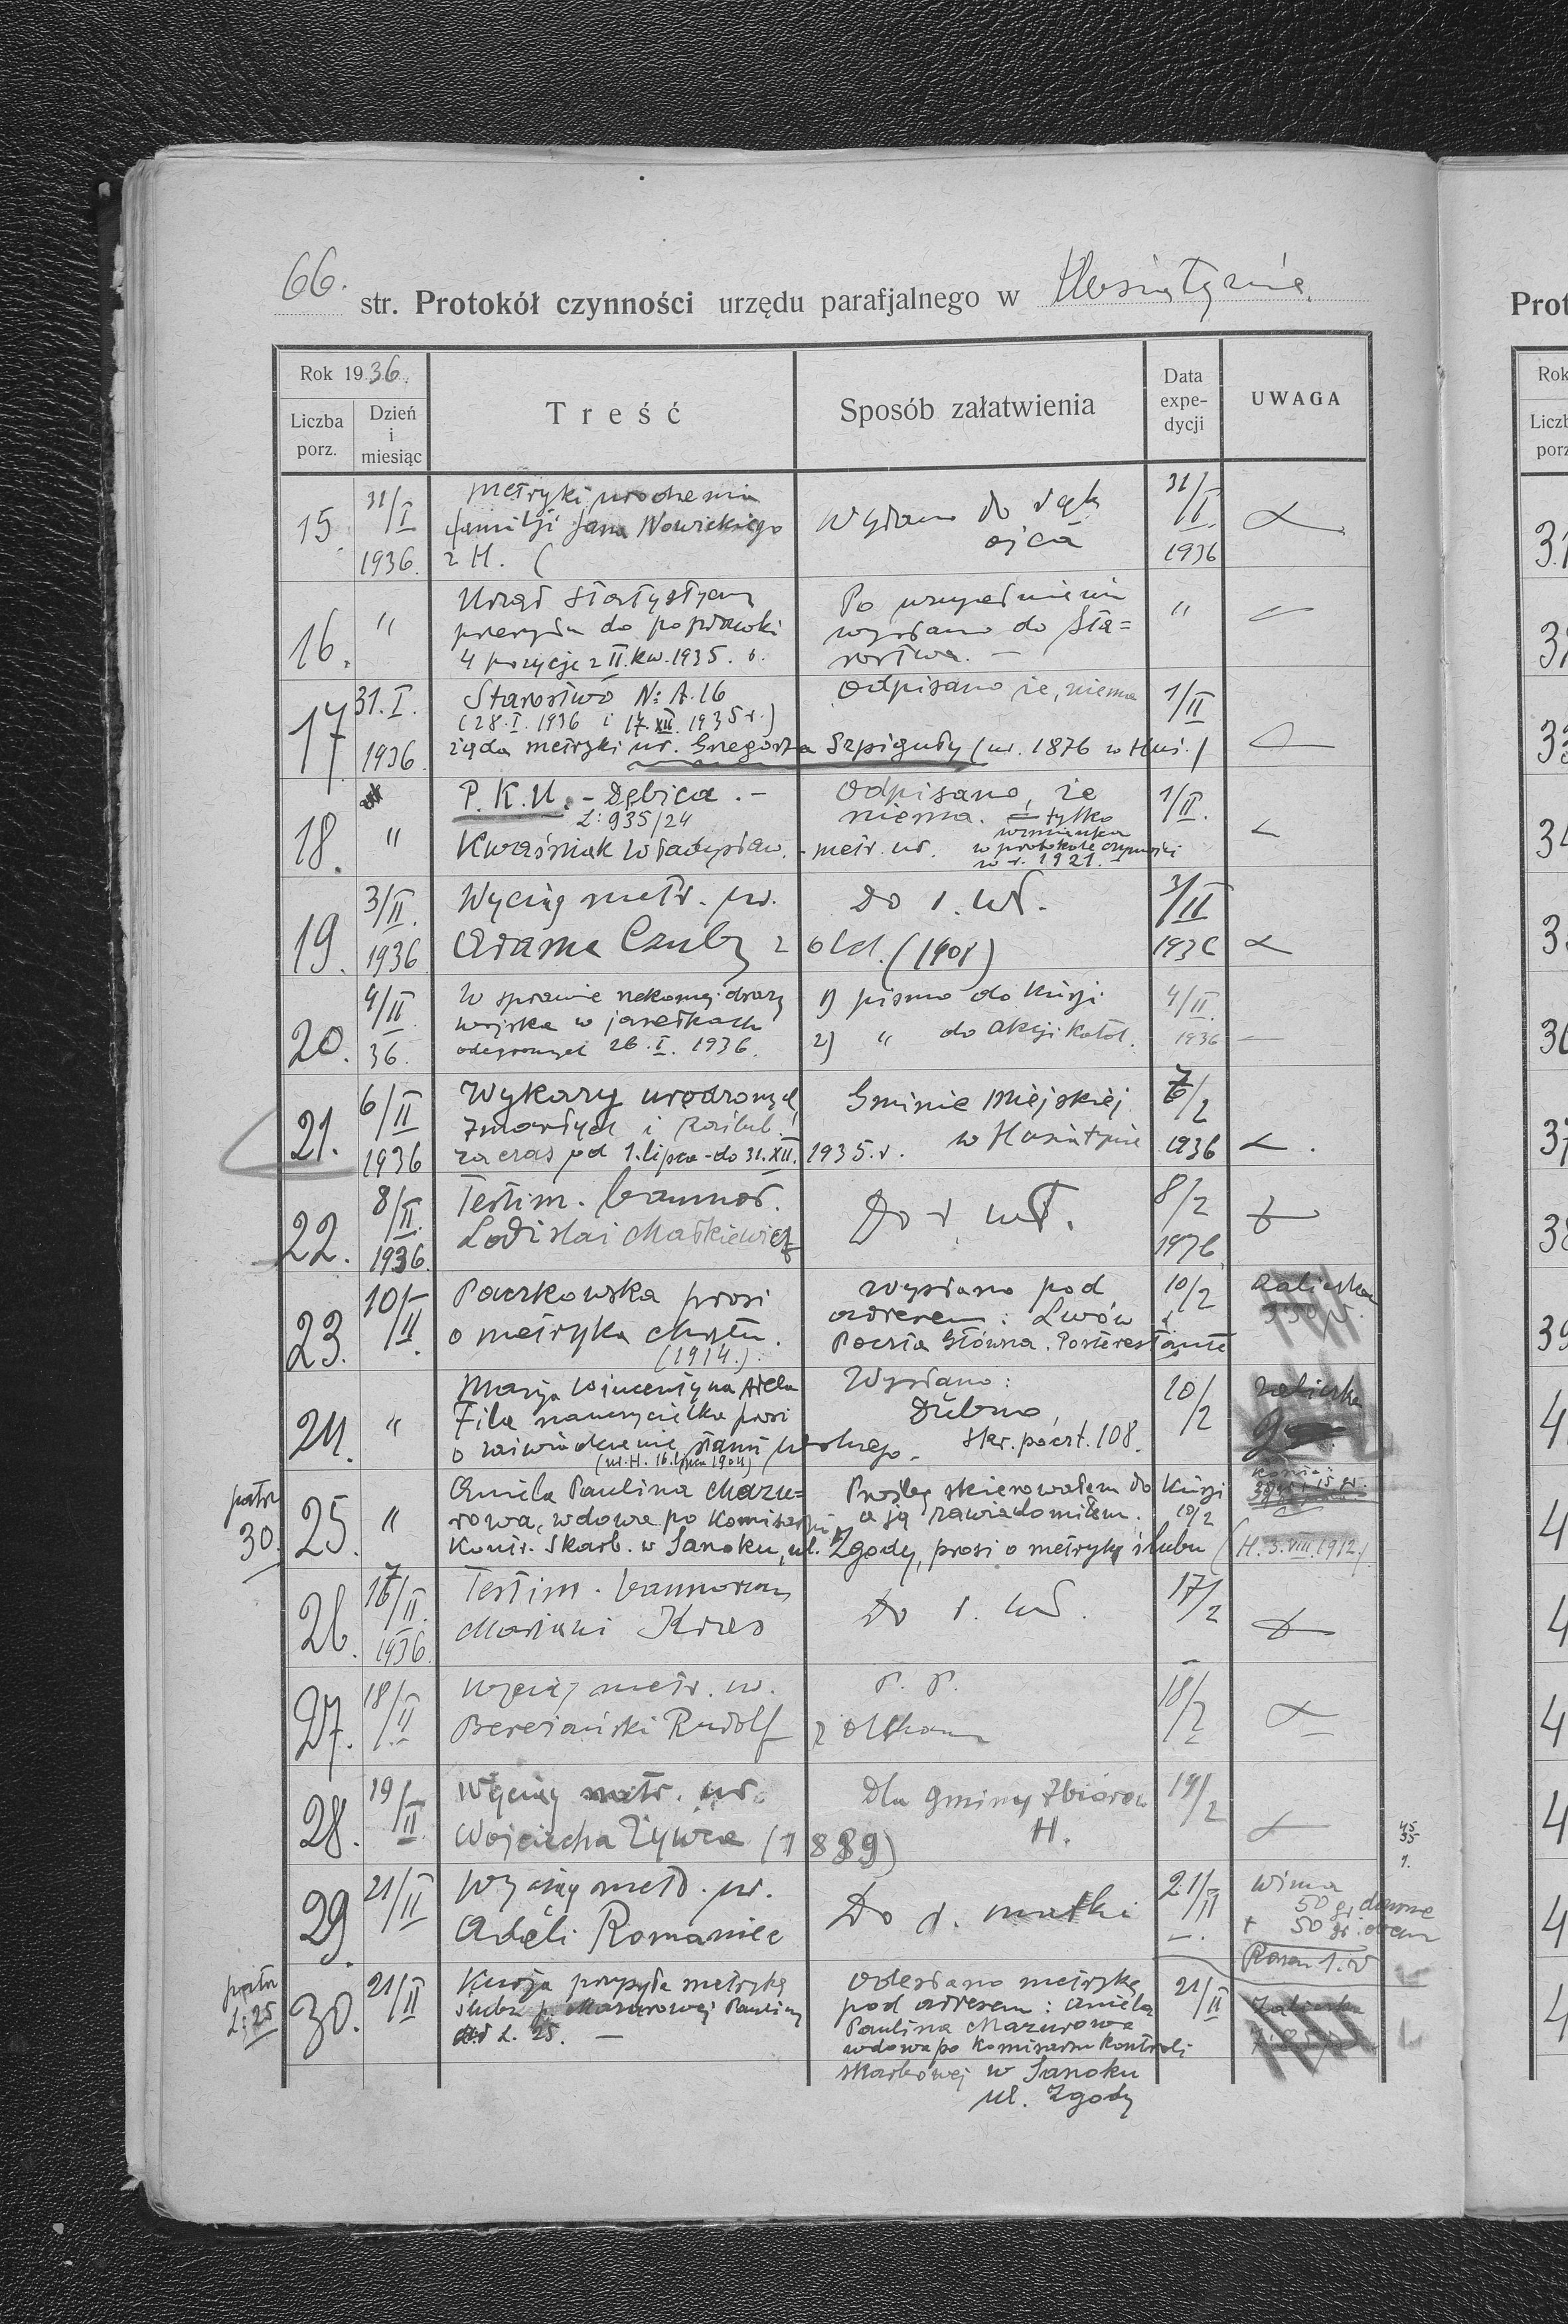 66. str. Protokół czynności urzędu parafjalnego w Husiatynie.
Rok 1936.
Liczba porz.
Dzień i miesiąc
Treść
Sposób załatwienia
Data expedycji
UWAGA
15.
31/I 1936.
Metryki urodzenia
familji Jana Nowickiego
z H. (
Wydano do rąk
ojca
31/I 1936
16.
"
Urząd Statystyczny
przesyła do poprawki
4 pozycje z II. kw. 1935.
Po uzupełnieniu
wysłano do Sta=
rostwa. —
"
17.
31. I. 1936.
Starostwo N: A. 16
(28. I. 1936 i 17. XII. 1935 r.)
żąda metryki ur. Grzegorza Szpiguły (ur. 1876 w Hus.)
Odpisano że, niema
1/II
18.
"
P. K. U. - Dębica. -
L: 935/24
Kwaśniak Władysław. - metr. ur.
Odpisano, że
niema. tylko
wzmianka
w protokole czynności
w r. 1921.
1/II.
19.
3/II. 1936
Wyciąg metr. ur.
Adama Czuby z Old. (1901)
Do r. wł.
3/II 1936
20.
4/II. 36.
W sprawie
wojska w jasełkach
odegranych 26. I. 1936.
1) pismo do Kurji
2) " do Akcji Katol.
4/II. 1936
21.
6/II 1936
Wykazy urodzonych,
zmarłych i zaślub.
za czas od 1. lipca - do 31. XII. 1935. r.
Gminie Miejskiej
w Husiatynie
7/2 1936
22.
8/II. 1936.
Testim. bannor.
Ladislai Małkiewicz
Do r. wł.
8/2 1936.
23.
10/II.
Paczkowska prosi
o metrykę chrztu.
(1914.).
Wysłano pod
adresem: Lwów
Poczta Główna. Posterestante
10/2
zaliczka
24.
"
Marja Wincentyna Adela
Fila nauczycielka prosi
o zaświadczenie stanu wolnego.
(ur. H. 16. lipca 1904)
Wysłano:
Dubno,
Skr. poczt. 108.
10/2
zaliczka
patrz
30.
25.
"
Aniela Paulina Mazu=
rowa, wdowa po Komisarzu
Kontr. Skarb. w Sanoku, ul. Zgody, prosi o metrykę ślubu (H. 3. VIII. 1912.)
Prośbę skierowałem do Kurji
a ją zawiadomiłem.
10/2
26.
17/II. 1936.
Testim. bannorum
Mariani Kras
Do r. wł.
17/2
27.
18/II
Wyciąg metr. ur.
Bereżański Rudolf
P. P.
18/2
28.
19/II
Wyciąg metr. ur.
Wojciecha Żywca (1889)
Dla gminy Zbiorow.
H.
19/2
45
55
1.
29.
21/II
Wyciąg metr. ur.
Adeli Romaniec
Do r. matki
21/II
winna
50 gr. dawne
+ 50 gr. obecn
Razem 1. zł
patrz
L: 25
30.
21/II
Kurja przesyła metrykę
ślubu p. Mazurowej Pauliny
L. 25. —
Odesłano metrykę
pod adresem: Aniela
Paulina Mazurowa
wdowa po Komisarzu Kontroli
Skarbowej w Sanoku
ul. Zgody
21/II
Zaliczka
Prot
Rok
Liczb
porz